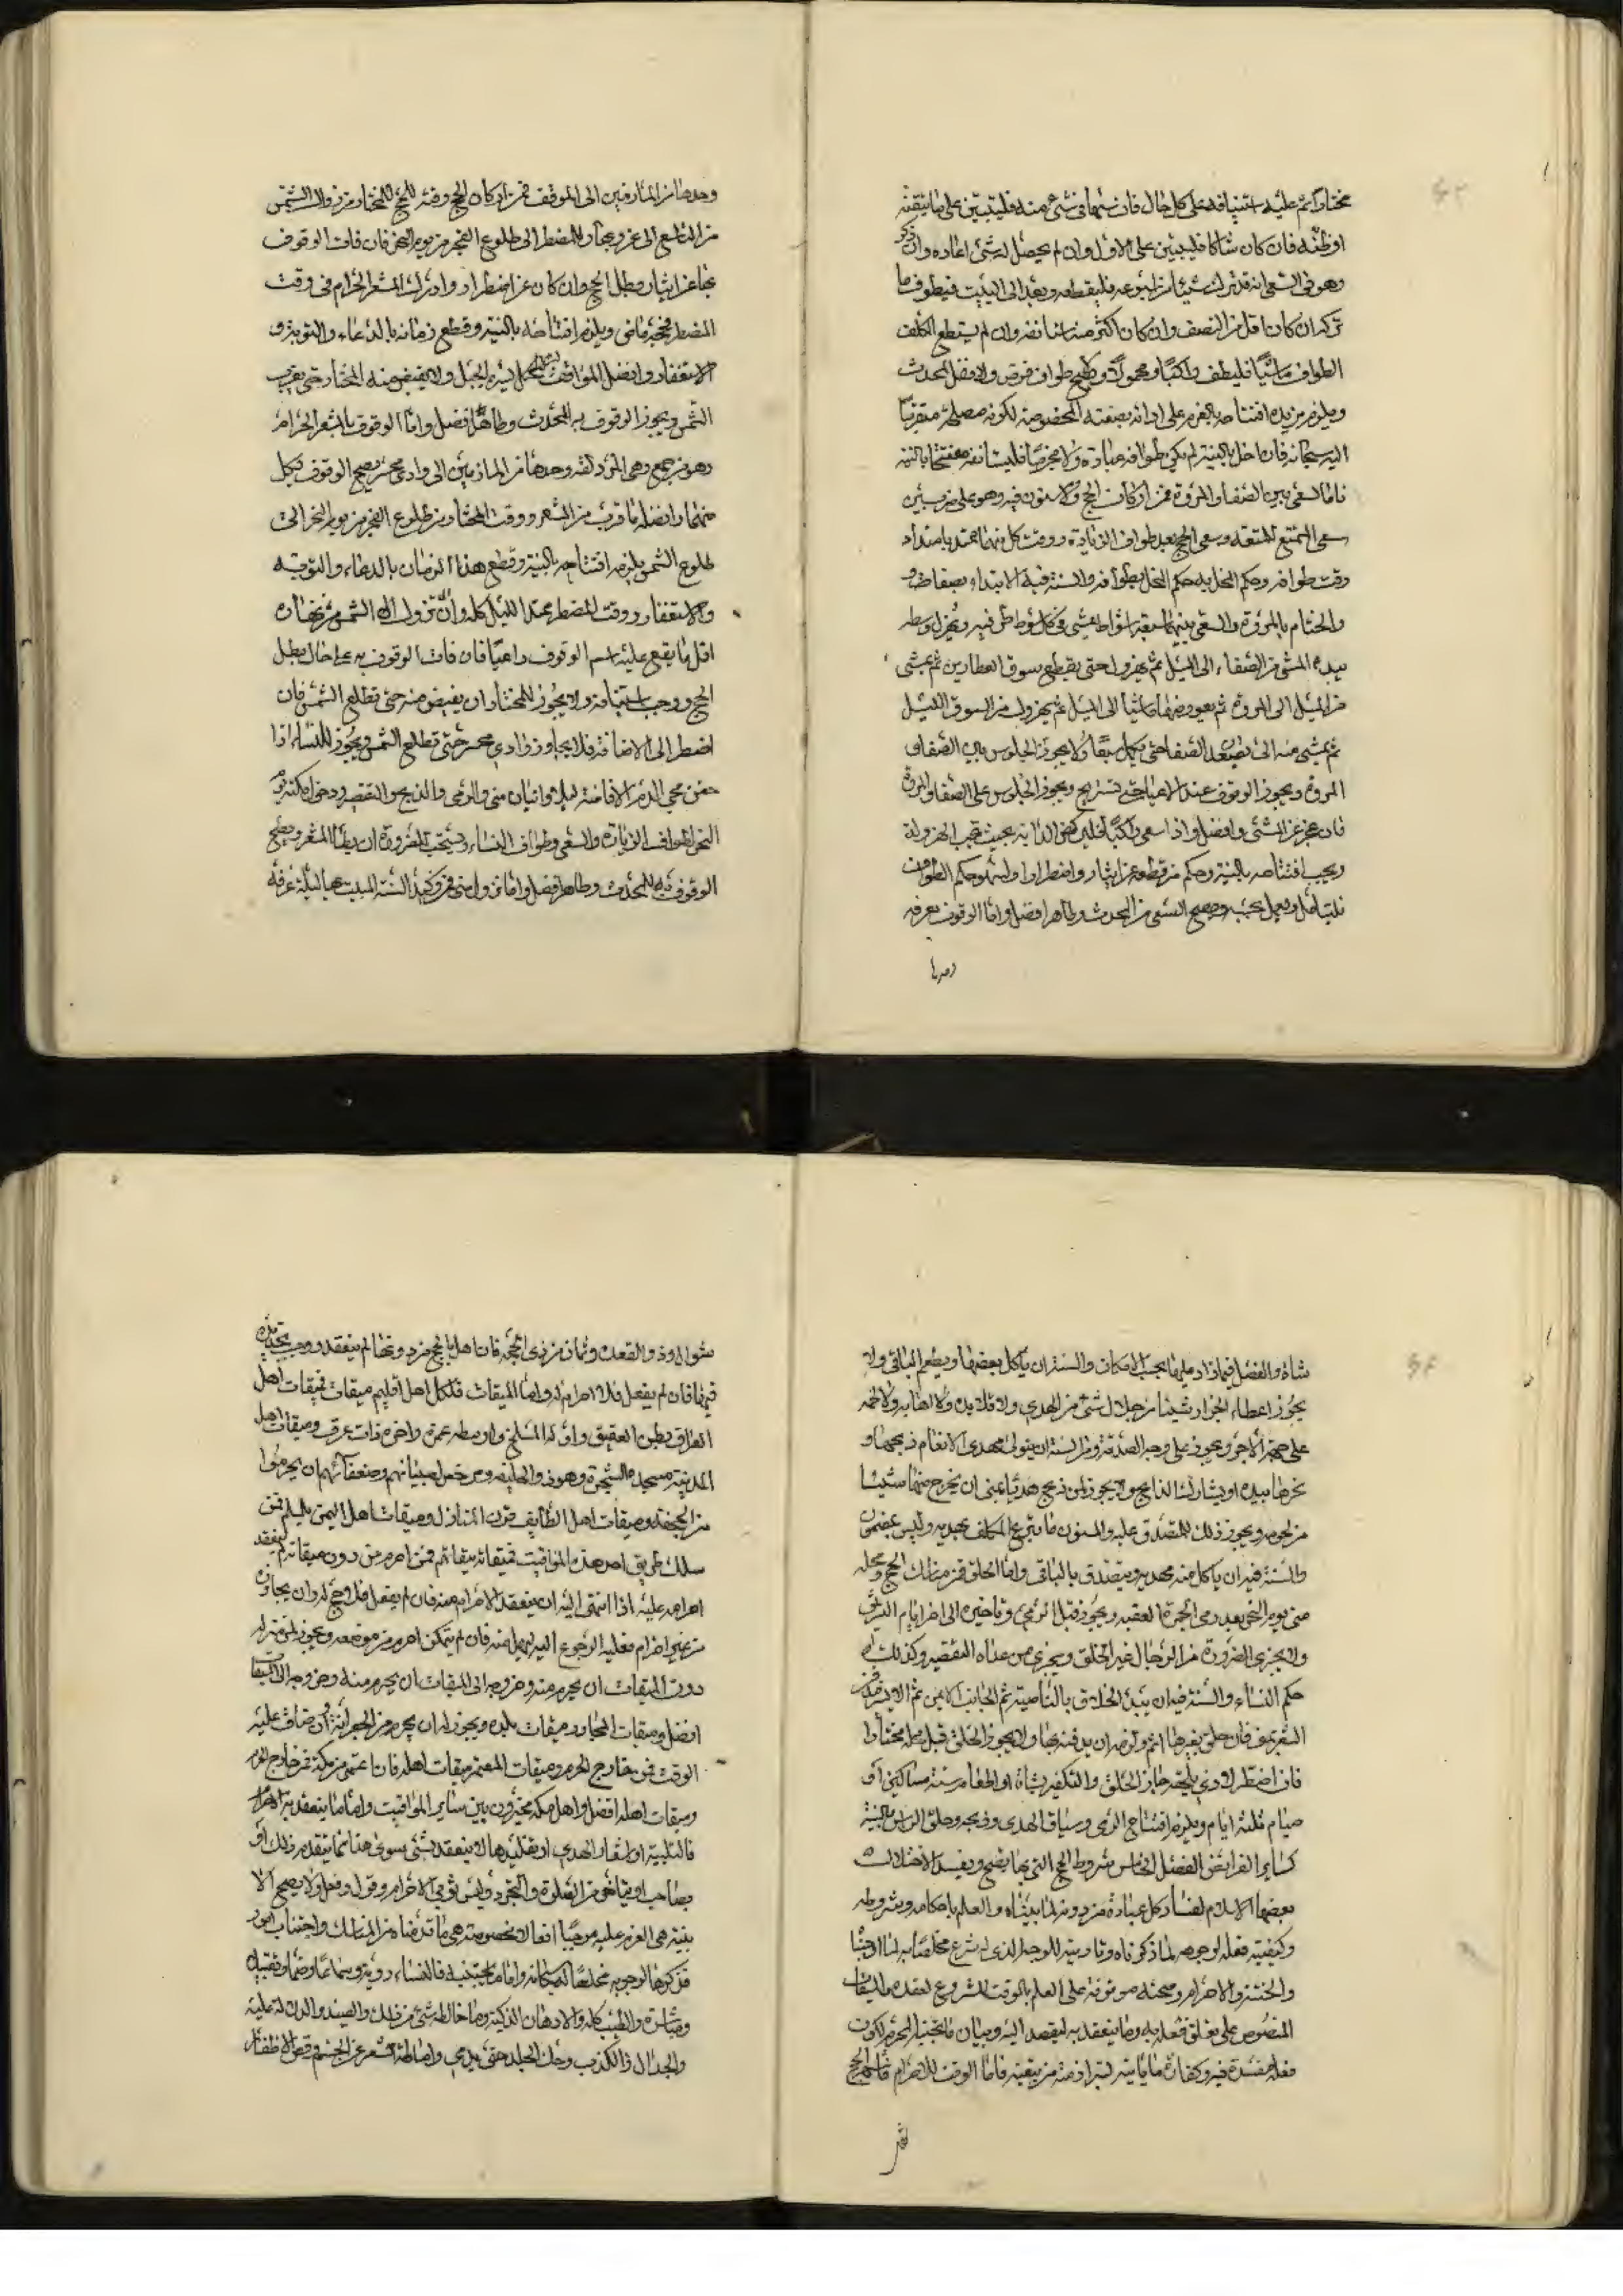 مختارا ثم عليه استينافه على كل حال فان سها في شيء منه فليبن على ما يتيقنه
او ظنه فان كان شاكا فليبن على الاول وان لم يحصل له شيء اعاده وان ذكر
وهو في السعي انه قد ترك شيئا من اسبوعه فليقطعه ويعد الى البيت فيطوف ما
تركه ان كان اقل من النصف وان كان اكثر منه استانفه وان لم يستطع المكلف
الطواف ماشيا فليطف راكبا او محمولا ولا يصح طواف فرض ولا نفل لمحدث
ويلزم مريده افتتاحه بالعزم على ادائه بصفته المخصوصة لكونه مصلحة متقربا
اليه سبحانه فان اخل بالنية لم يكن طوافه عبادة ولا مجزيا فليستانفه مفتتحا بالنية
فاما السعي بين الصفا والمروة فمن اركان الحج والمسنون فيه وهو على ضربين
سعي المتمتع للمتعة وسعي الحج بعد طواف الزيادة ووقت كل منهما ممتد بامتداد
وقت طوافه وحكم المخل به حكم المخل بطوافه والسنة فيه الابتداء بصفا
والختام بالمروة والسعي بينهما سبعة اشواط يمشي في كل شوط طرفيه ويهرول وسطه
يبدء المشي من الصفاء الى الميل ثم يهرول حتى يقطع سوق العطارين ثم يمشي
من الميل الى المروة ثم يعود منها ماشيا الى الميل ثم يهرول من السوق الى الميل
ثم يمشي منه الى ان يصعد الصفا حتى يكمل سبعا ولا يجوز الجلوس بين الصفا و
المروة ويجوز الوقوف عند الاعياء حتى تستريح ويجوز الجلوس على الصفا والمروة
فان عجز عن المشي وافضل واذا سعى راكبا فليركض الدابة بحيث تجب الهرولة
ويجب افتتاحه بالنية وحكم من قطعه عن ايثار واضطرار او لسهو حكم الطواف
فليتامل ويعمل بحسبه ويصح السعي من المحدث وطاهرا افضل واما الوقوف بعرفه
وحدها
وحدها من المازمين الى الموقف فمن اركان الحج وقته للمختار من زوال الشمس
من التاسع الى غروبها وللمضطر الى طلوع الفجر من يوم النحر فان فات الوقوف
بها عن ايثار بطل الحج وان كان عن اضطرار وادرك المشعر الحرام في وقت
المضطر فحجه ماض ويلزم افتتاحه بالنية وقطع زمانه بالدعاء والتوبة و
الاستغفار وافضل المواقف ميسرة الجبل ولا يفيض منه المختار حتى تغرب
الشمس ويجوز الوقوف به للمحدث وطاهرا افضل واما الوقوف بالمشعر الحرام
وهو جمع وهي المزدلفه وحدها من المازمين الى وادي محسر يصح الوقوف بكل
منهما وافضله ما قرب من المشعر ووقت المختار من طلوع الفجر من يوم النحر الى
طلوع الشمس يلزم افتتاحه بالنية وقطع هذا الزمان بالدعاء والتوبة
والاستغفار ووقت المضطر ممتد الليل كله والى زوال الشمس من نهاره
اقل ما يقع عليه اسم الوقوف داعيا فان فات الوقوف به على حال بطل
الحج ووجب استينافه ولا يجوز للمختار ان يفيض منه حتى تطلع الشمس فان
اضطر الى الافاضة فلا يجاوز وادي محسر حتى تطلع الشمس ويجوز للنساء اذا
خفن مجي الدم الافاضة ليلا واتيان منى والرمي والذبح والتقصير ودخول مكة يوم
النحر لطواف الزيارة والسعي وطواف النساء ويستحب للصرورة ان يطأ المشعر ويصح
الوقوف فيه للمحدث وطاهرا افضل واما نزول منى فمن وكيد السنة المبيت بها ليلة عرفه
شاة والفضل فيما زاد عليها بحسب الامكان والسنة ان ياكل بعضها ويطعم الباقي ولا
يجوز اعطاء الجزار شيئا من جلال شيء من الهدي ولا قلايده ولا اهابه ولا لحمه
على جهة الاجر ويجوز على وجه الصدقة ومن السنة ان يتولى مهدي الانعام ذبحها و
نحرها بيده او يشارك الذابح ولا يجوز لمن ذبح هديا بمنى ان يخرج منها شيئا
من لحومه ويجوز ذلك للمتصدق عليه والمسنون ما تبرع المكلف بهديه وليس بمضمون
والسنة فيه ان ياكل منه مهديه ويتصدق بالباقي واما الحلق فمن مناسك الحج ومحله
منى يوم النحر بعد رمي الجمرة العقبه ويجوز قبل الرمي وتاخيره الى اخر ايام التشريق
ولا يجزي الصرورة من الرجال غير الحلق ويجزي من عداه التقصير وكذلك
حكم النساء والسنة فيه ان يبدء الحلاق بالناصية ثم الجانب الايمن ثم الايسر
الشعر بمنى فان حلق بغيرها اثم ولزمه ان يدفنه بها ولا يجوز الحلق قبل محله مختارا
فان اضطر لاذى يلحقه جاز الحلق والتكفير بشاة او اطعام ستة مساكين او
صيام ثلثة ايام ويلزم افتتاح الرمي وسياق الهدي وذبحه وحلق الراس بالنية
كساير الفرايض الفصل الخامس شروط الحج التي بها يصح ويفسد لاختلال
بعضها الاسلام لفساد كل عبادة من دونه لما بيناه والعلم باحكامه وشروطه
وكيفيته فعله لوجوهه لما ذكرناه وتاديته للوجه الذي له شرع مخلصا به لما اوجبنا
والختنة والاحرام وصحته موقوفة على العلم بالوقت المشروع لعقده والميقات
المنصوص على تعلق فعله به وما ينعقد به ليقصد اليه وبيان ما يجتنبه المحرم لكون
فعله مفسدة فيه وكفارة ما ياتيه لتبرا ذمته من تبعته فاما الوقت للاحرام فاشهر الحج
شوال وذو القعده وثمان من ذي الحجه فان اهل بالحج من دونها لم ينعقد ووجب تجديده
فيها فان لم يفعل فلا احرام له واما الميقات فلكل اهل اقليم ميقات فميقات اهل
العراق بطن العقيق واوله المسلخ واوسطه غمرة واخره ذات عرق وميقات اهل
المدينة مسجد الشجرة وهو ذو الحليفه ومرخص لصبيانهم وضعفائهم ان يحرموا
من الجحفه وميقات اهل الطايف قرن المنازل وميقات اهل اليمن يلملم فمن
سلك طريق اهل هذه المواقيت فميقاته ميقاتهم فمن احرم من دون ميقاته لم ينعقد
احرامه عليه اذا انتهى اليه ان يعقد الاحرام منه فان لم يفعل فلا حج له وان تجاوزه
من غير احرام فعليه الرجوع اليه ليهل منه فان لم يتمكن احرم من موضعه ويجوز لمن منزله
دون الميقات ان يحرم منه وخروجه الى الميقات ان يحرم منه وخروجه الى الميقات
افضل وميقات المجاور ميقات بلده ويجوز له ان يحرم من الجعرانة وان ضاق عليه
الوقت فمن خارج الحرم وميقات المعتمر ميقات اهله فان اعتمر من مكة فمن خارج الحرم
وميقات اهله افضل واهل مكه مخيرون بين ساير المواقيت واما ما ينعقد به الاحرام
فالتلبية او اشعار الهدي او تقليدها لا ينعقد بشيء سوى هذا مما يتقدم ذلك او
يصاحب او يتاخر من الصلوة والتجرد ولبس ثوبي الاحرام وقول وفعل ولا يصح الا
بنية هي العزم عليه موجبا افعالا مخصوصة هي ما قدمناه من المناسك واجتناب امور
نذكرها لوجوبه مخلصا له سبحانه واما ما يجتنبه فالنساء رؤية وسماعا وضما وتقبيلا
ومباشرة والطيب كله والادهان الذكية وما خالطه شيء من ذلك والصيد والدلالة عليه
والجدال والكذب وحك الجلد حتى يدمي واماطة الشعر عن الجسم وقص الاظفار